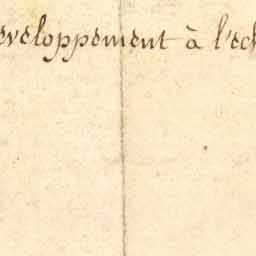 eveloppement à l'ech